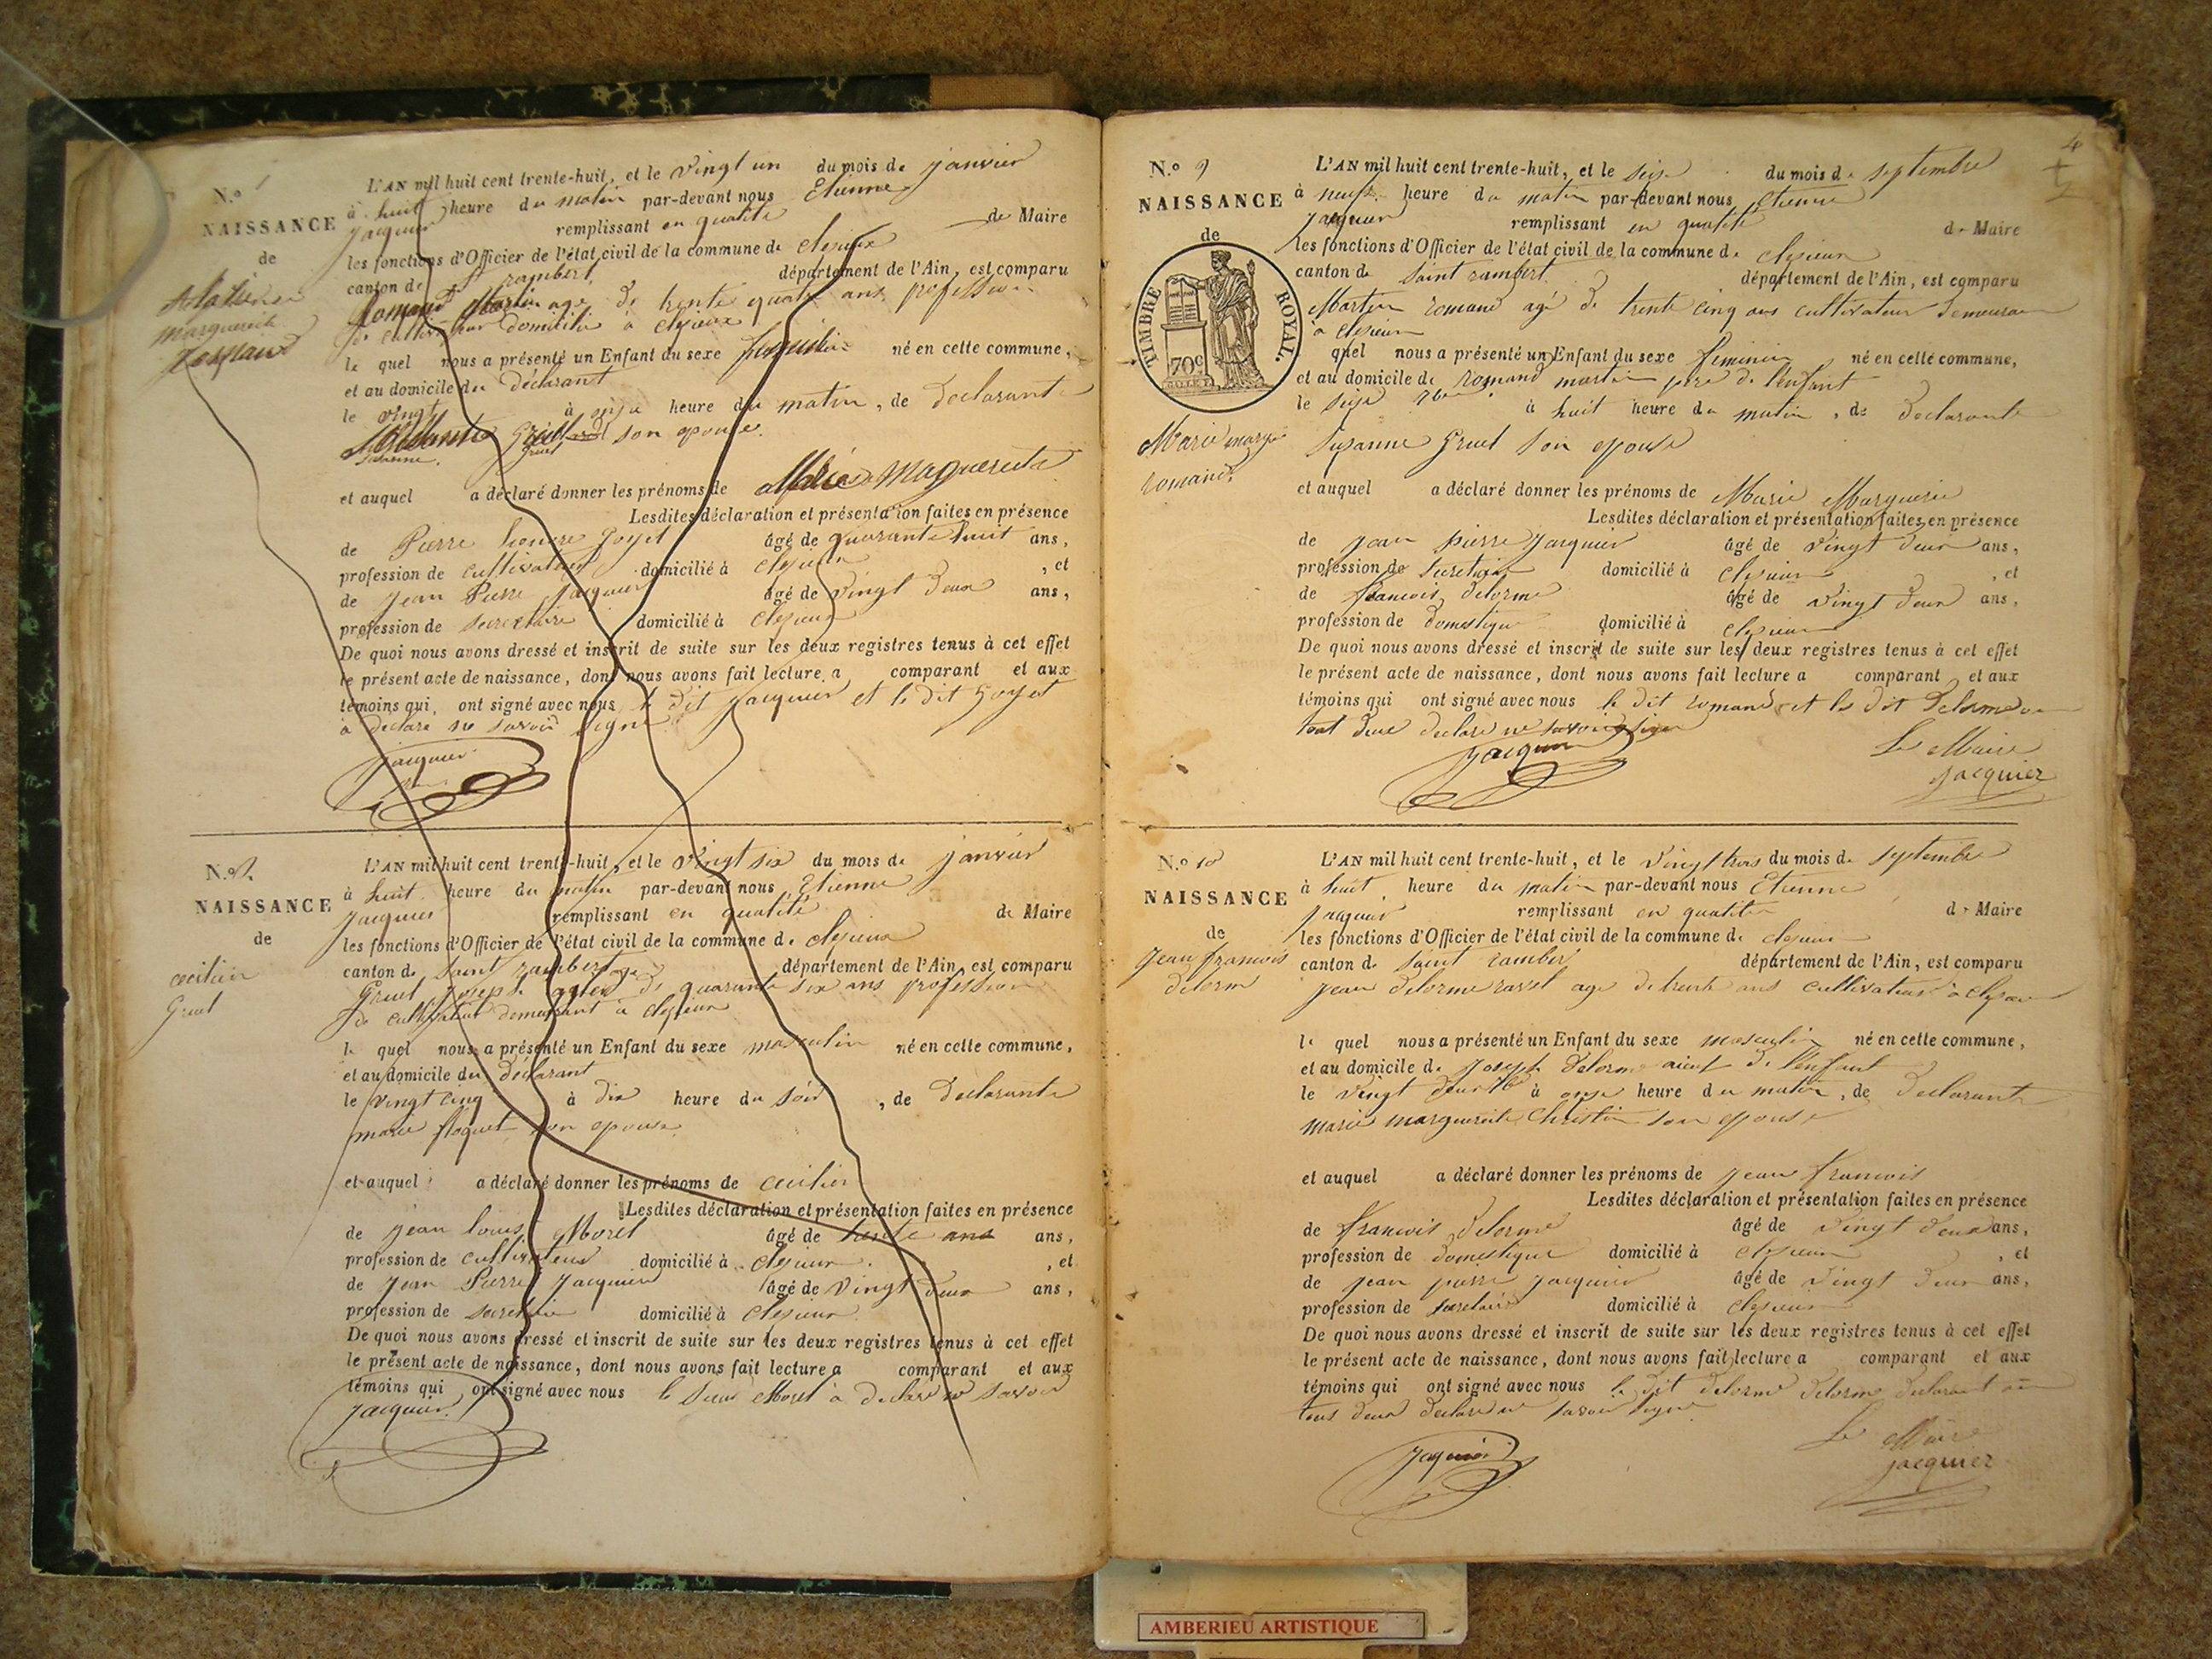 N.º 1
NAISSANCE
de
marguerite
L'AN mil huit cent trente-huit, et le vingt un du mois de janvier
à huit heure du matin par-devant nous Etienne
jacquier remplissant en qualité de Maire
les fonctions d'Officier de l'état civil de la commune de clezieux
canton de St rambert département de l'Ain, est comparu
Romand Martin age de trente quatre ans profession
de domicilié à clezieux
le quel nous a présenté un Enfant du sexe né en cette commune,
et au domicile du déclarant
le vingt à onze heure du matin, de declarante
Gruel son epouse
et auquel a déclaré donner les prénoms de Marie Maguerite
Lesdites déclaration et présentation faites en présence
de Pierre Goyet âgé de quarante huit ans,
profession de cultivateur domicilié à clezieux, et
de jean Pierre jacquier âgé de vingt deux ans,
profession de secretaire domicilié à clezieux
De quoi nous avons dressé et inscrit de suite sur les deux registres tenus à cet effet
le présent acte de naissance, dont nous avons fait lecture a comparant et aux
témoins qui ont signé avec nous le dit jacquier et le dit Goyet
à declaré ne savoir signé
jacquier
N.º 2
NAISSANCE
de
cecilien
Gruel
L'AN mil huit cent trente-huit, et le vingt six du mois de janvier
à huit heure du matin par-devant nous Etienne
jacquier remplissant en qualité de Maire
les fonctions d'Officier de l'état civil de la commune de clezieux
canton de saint rambert département de l'Ain, est comparu
Gruel joseph de quarante six ans profession
de cultivateur demeurant à clezieux
le quel nous a présenté un Enfant du sexe masculin né en cette commune,
et au domicile du déclarant
le vingt cinq à dix heure du soir, de declarante
marie floquet son epouse
et auquel a déclaré donner les prénoms de cecilien
Lesdites déclaration et présentation faites en présence
de jean louis Moret âgé de trente ans ans,
profession de cultivateur domicilié à clezieux, et
de jean Pierre jacquier âgé de vingt deux ans,
profession de secretaire domicilié à clezieux
De quoi nous avons dressé et inscrit de suite sur les deux registres tenus à cet effet
le présent acte de naissance, dont nous avons fait lecture a comparant et aux
témoins qui ont signé avec nous le sieur Moret à declaré ne savoir
jacquier
4
N.º 9
NAISSANCE
de
TIMBRE ROYAL.
70c
Marie marg
romand
L'AN mil huit cent trente-huit, et le seize du mois de septembre
à neuf heure du matin par-devant nous Etienne
jacquier remplissant en qualité de Maire
les fonctions d'Officier de l'état civil de la commune de clezieux
canton de saint rambert département de l'Ain, est comparu
Martin romand agé de trente cinq ans cultivateur demeurant
à clezieux
quel nous a présenté un Enfant du sexe feminin né en cette commune,
et au domicile de romand martin pere de l'enfant
le seize 7bre à huit heure du matin, de declarante
suzanne Gruel son epouse
et auquel a déclaré donner les prénoms de Marie Marguerie
Lesdites déclaration et présentation faites en présence
de jean pierre jacquier âgé de vingt deux ans,
profession de secretaire domicilié à clezieux, et
de francois delorme âgé de vingt deux ans,
profession de domestique domicilié à clezieux
De quoi nous avons dressé et inscrit de suite sur les deux registres tenus à cet effet
le présent acte de naissance, dont nous avons fait lecture a comparant et aux
témoins qui ont signé avec nous le dit romand et le dit delorme
tout deux declaré ne savoir signer
jacquier
Le Maire
jacquier
N.º 10
NAISSANCE
de
jean francois
delorm
L'AN mil huit cent trente-huit, et le vingt trois du mois de septembre
à huit heure du matin par-devant nous Etienne
jacquier remplissant en qualité de Maire
les fonctions d'Officier de l'état civil de la commune de clezieux
canton de saint rambert département de l'Ain, est comparu
jean delorme ravet age de trente ans cultivateur à clezieux
le quel nous a présenté un Enfant du sexe masculin né en cette commune,
et au domicile de joseph delorme aieul de l'enfant
le vingt deux 7bre à onze heure du matin, de declarante
marie marguerite Christin son epouse
et auquel a déclaré donner les prénoms de jean francois
Lesdites déclaration et présentation faites en présence
de francois delorme âgé de vingt deux ans,
profession de domestique domicilié à clezieux, et
de jean pierre jacquier âgé de vingt deux ans,
profession de secretaire domicilié à clezieux
De quoi nous avons dressé et inscrit de suite sur les deux registres tenus à cet effet
le présent acte de naissance, dont nous avons fait lecture a comparant et aux
témoins qui ont signé avec nous le dit delorme delorme declarant
tous deux declaré ne savoir signé
jacquier
Le Maire
jacquier
AMBERIEU ARTISTIQUE